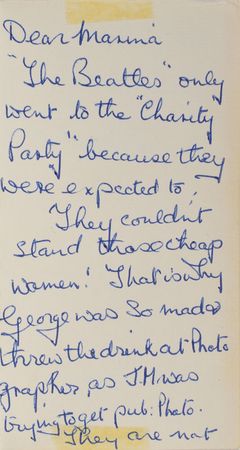 Dear Marina
"The Beatles" only
went to the "Charity
Party" because they
were "expected to,
They couldn't
stand those cheap
women! That is why
George was so mad &
threw the drink at Photo
grapher, as J.M. was
trying to get pub: Photo.
They are not